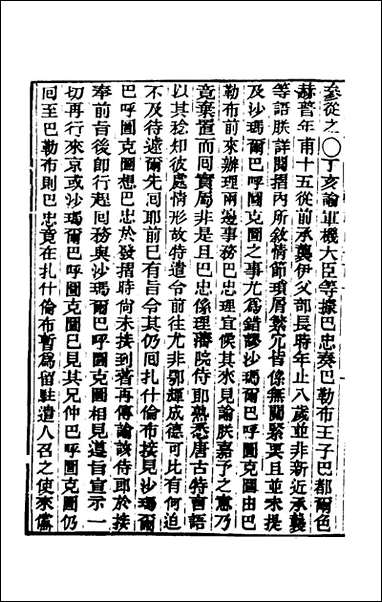 至從之○丁亥諭軍機大臣等據巴忠奏巴勒布王子巴都爾色
赫普年甫十五從前承襲伊父部長時年止八歲並非新近承襲
等語朕詳閱摺內所敘情節瑣屑繁冗皆係無關緊要且並未提
及沙瑪爾巴呼圖克圖之事尤為錯謬沙瑪爾巴呼圖克圖由巴
勒布前來辦理兩邊事務巴忠理宜俟其來見諭朕嘉予之意乃
竟棄置而回實屬非是且巴忠係理藩院侍郎熟悉唐古特言語
以其稔知彼處情形故特遣令前往尤非鄂輝成德可比有何迫
不及待遽爾先回耶前已有旨令其仍回扎什倫布接見沙瑪爾
巴呼圖克圖想巴忠於發摺時尚未接到著再傳諭該侍郎於接
奉前旨後即行起回務與沙瑪爾巴呼圖克圖相見遵旨宣示一
切再行來京或沙瑪爾巴呼圖克圖已見其兄仲巴呼圖克圖仍
回至巴勒布則巴忠竟在扎什倫布暫為留駐遣人召之使來當